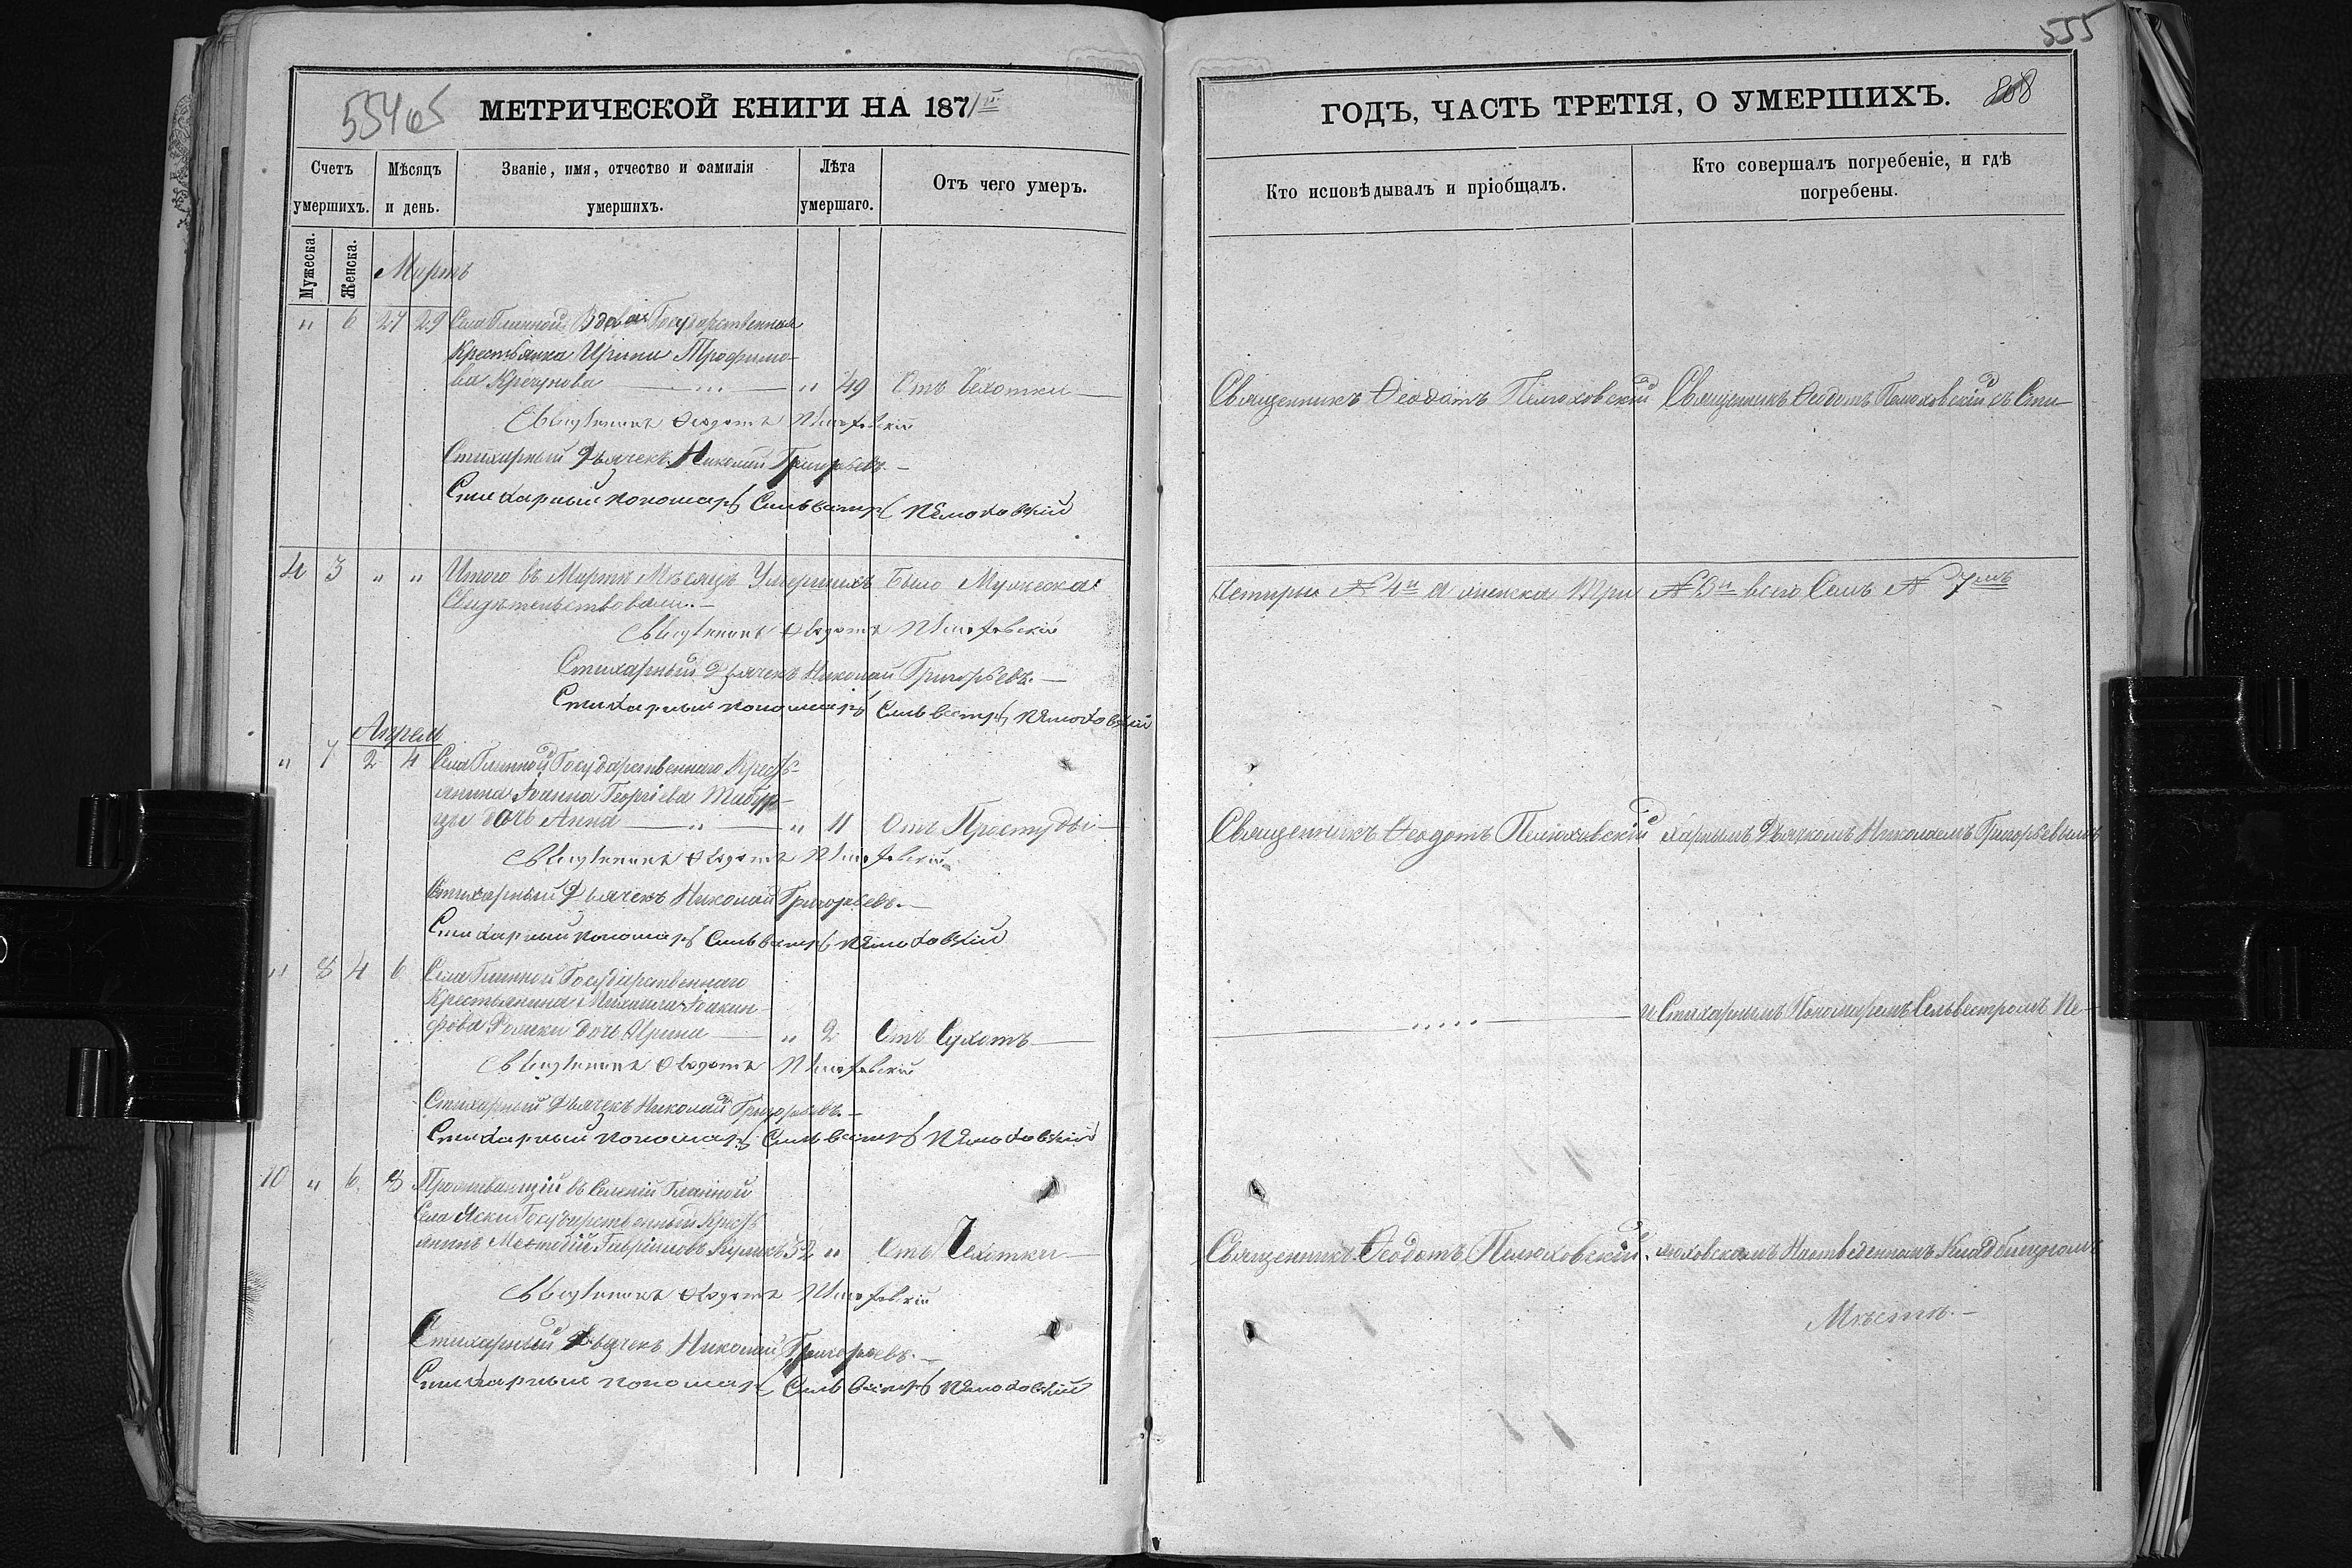 554об
МЕТРИЧЕСКОЙ КНИГИ НА 1871
Счетъ умершихъ.
Мѣсяцъ и день.
Званіе, имя, отчество и фамилія умершихъ.
Лѣта умершаго.
Отъ чего умеръ.
Мужеска.
Женска.
Мартъ
" 6 27 29 Села Глинной Вдова Государственная
Крестьянка Ирина Трофимо-
ва Кречунова " 49 Отъ Чахотки
Священникъ Ѳеодотъ Пелюховскій
Стихарный Дьячекъ Николай Григорьевъ.
Стихарный пономарь Сильвестръ Пелюховскій
4 3 " " Итого въ Мартѣ Мѣсяцѣ Умершихъ Было Мужеска
Свидѣтельствовали.
Священникъ Ѳеодотъ Пелюховскій
Стихарный Дьячекъ Николай Григорьевъ.
Стихарный пономарь Сильвестръ Пелюховскій
Апрель
" 7 2 4 Села Глинной Государственнаго Кресть-
янина Іоанна Георгіева
дочь Анна " 11 Отъ Простуды
Священникъ Ѳеодотъ Пелюховскій
Стихарный Дьячекъ Николай Григорьевъ.
Стихарный пономарь Сильвестръ Пелюховскій
" 8 4 6 Села Глинной Государственнаго
Крестьянина Михаила Іоакин-
фова дочь Ирина " 2 Отъ Сухотъ
Священникъ Ѳеодотъ Пелюховскій
Стихарный Дьячекъ Николай Григорьевъ.
Стихарный пономарь Сильвестръ Пелюховскій
10 " 6 8 Проживающій въ Селеніи Глинной
Села Яски Государственный Кресть
янинъ Меѳтодій Гавріиловъ Куликъ 52 " Отъ Чахотки
Священникъ Ѳеодотъ Пелюховскій
Стихарный Дьячекъ Николай Григорьевъ.
Стихарный пономарь Сильвестръ Пелюховскій
555
ГОДЪ, ЧАСТЬ ТРЕТІЯ, О УМЕРШИХЪ.
Кто исповѣдывалъ и пріобщалъ.
Кто совершалъ погребеніе, и гдѣ погребены.
Священникъ Ѳеодотъ Пелюховскій Священникъ Ѳеодотъ Пелюховскій съ Сти-
Четыри № 4 а женска Три № 3 всего Семъ № 7
Священникъ Ѳеодотъ Пелюховскій харнымъ Дьячкомъ Николаемъ Григорьевымъ
и Стихарнымъ Пономаремъ Сельвестромъ Пе-
Священникъ Ѳеодотъ Пелюховскій. люховскимъ На отведенномъ Кладбищномъ
Мѣстѣ.